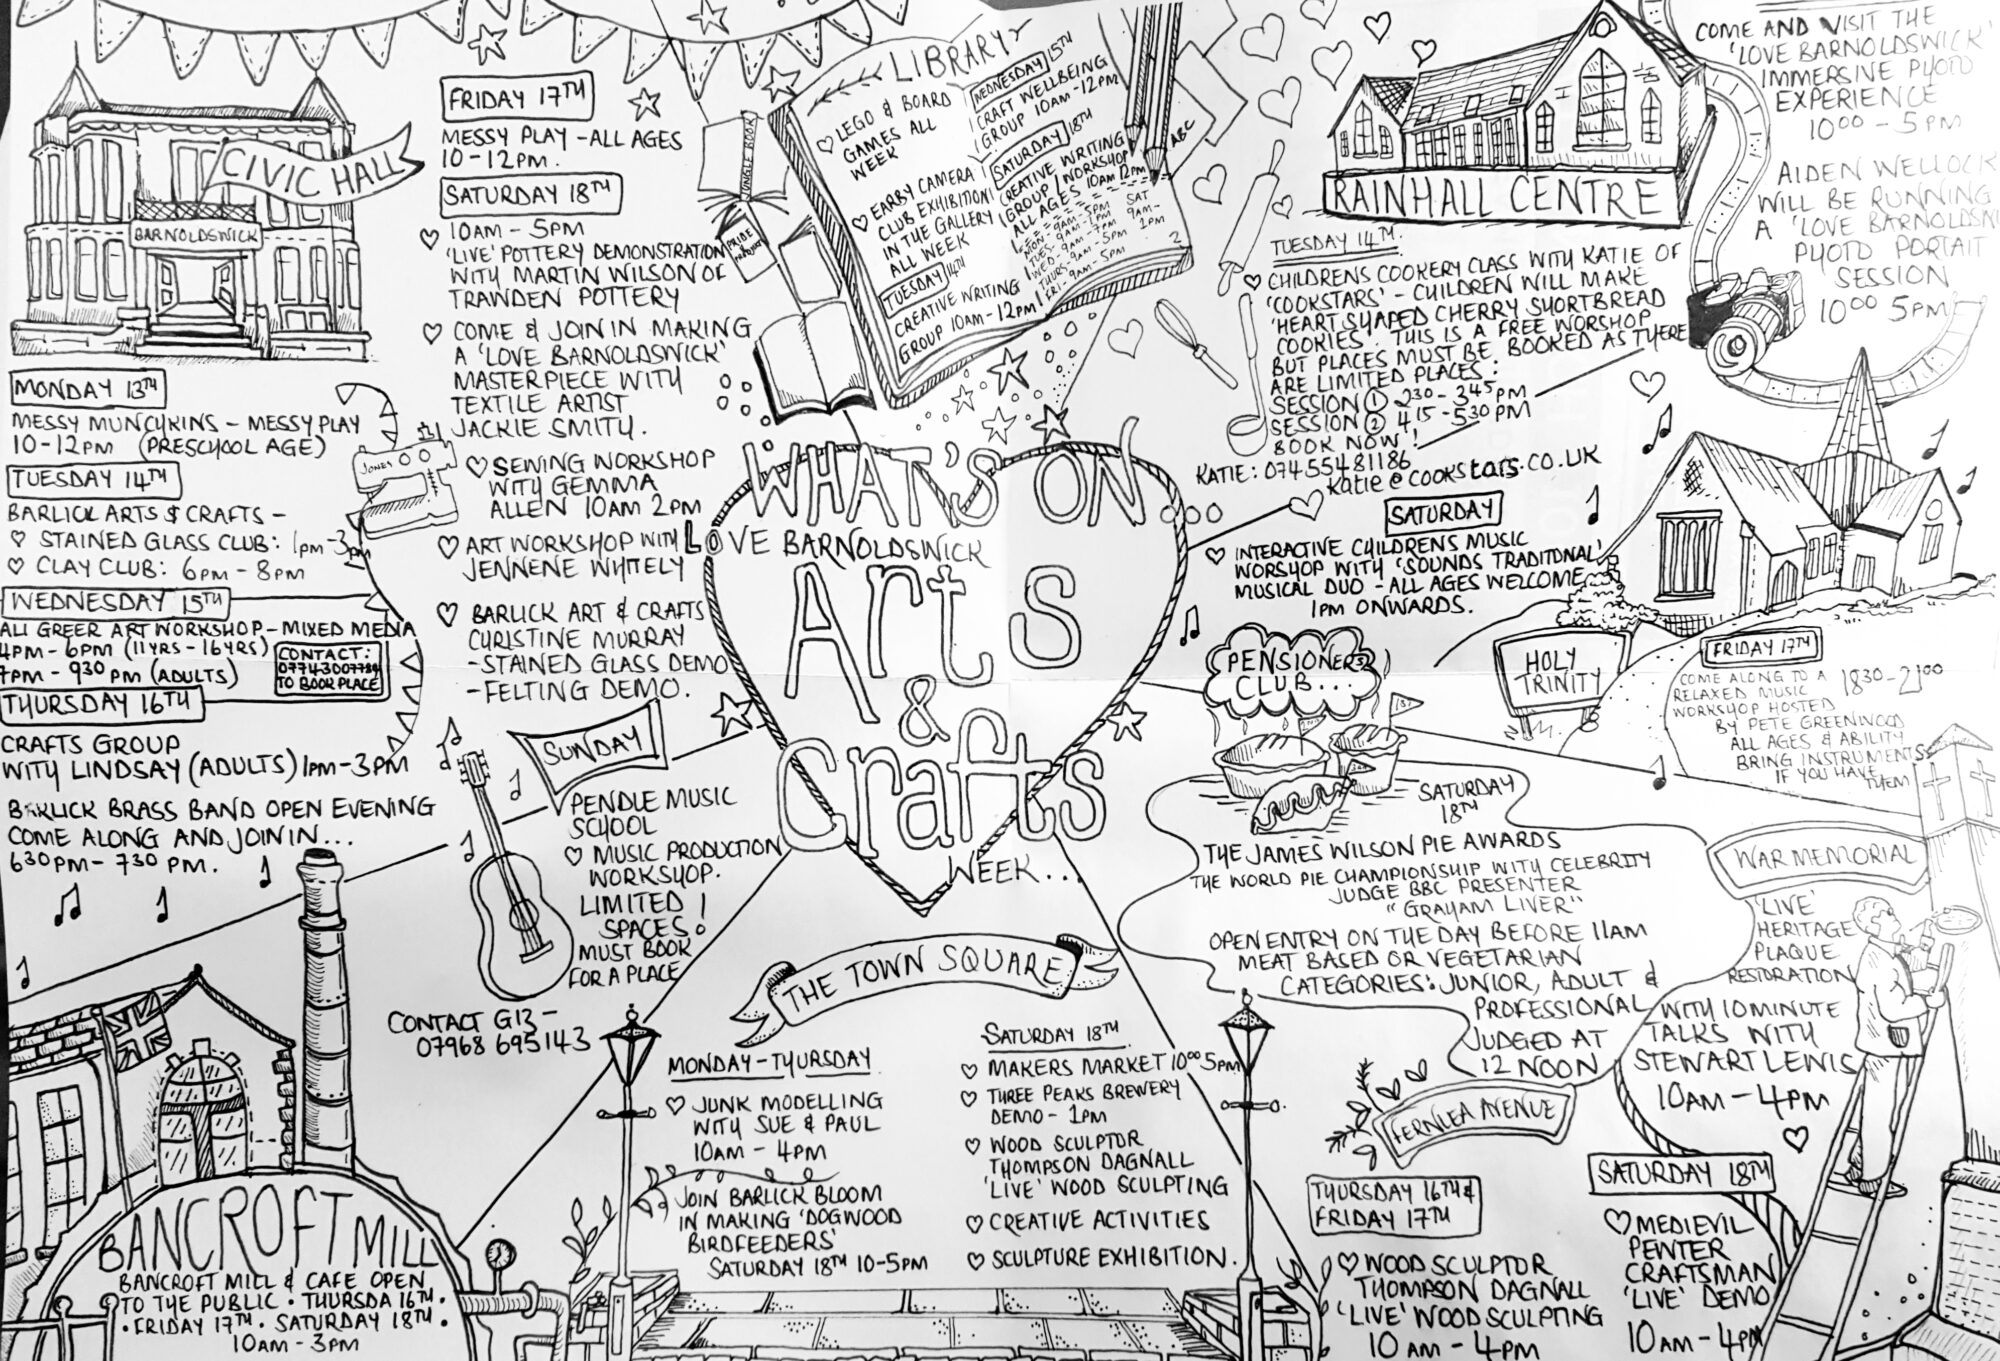 CIVIC HALL
BARNOLDSWICK
MONDAY 13TH
MESSY MUNCHKINS - MESSY PLAY
10-12PM (PRESCHOOL AGE)
TUESDAY 14TH
BARLICK ARTS & CRAFTS -
STAINED GLASS CLUB: 1PM-3PM
CLAY CLUB: 6PM - 8PM
WEDNESDAY 15TH
ALI GREER ART WORKSHOP - MIXED MEDIA
4PM - 6PM (11YRS - 16YRS)
7PM - 930 PM (ADULTS)
CONTACT:
TO BOOK PLACE
THURSDAY 16TH
CRAFTS GROUP
WITH LINDSAY (ADULTS) 1PM-3PM
BARLICK BRASS BAND OPEN EVENING
COME ALONG AND JOIN IN...
630PM - 730 PM.
JONES
FRIDAY 17TH
MESSY PLAY - ALL AGES
10-12PM.
SATURDAY 18TH
10AM - 5PM
'LIVE' POTTERY DEMONSTRATION
WITH MARTIN WILSON OF
TRAWDEN POTTERY
COME & JOIN IN MAKING
A 'LOVE BARNOLDSWICK'
MASTERPIECE WITH
TEXTILE ARTIST
JACKIE SMITH.
SEWING WORKSHOP
WITH GEMMA
ALLEN 10AM 2PM
ART WORKSHOP WITH
JENNENE WHITELY
BARLICK ART & CRAFTS
CHRISTINE MURRAY
-STAINED GLASS DEMO
-FELTING DEMO.
SUNDAY
PENDLE MUSIC
SCHOOL
MUSIC PRODUCTION
WORKSHOP.
LIMITED
SPACES!
MUST BOOK
FOR A PLACE
CONTACT G13 -
07968 695143
BANCROFT MILL
BANCROFT MILL & CAFE OPEN
TO THE PUBLIC • THURSDA 16TH •
• FRIDAY 17TH • SATURDAY 18TH •
10AM - 3PM
JUNGLE BOOK
PRIDE
LIBRARY
LEGO & BOARD
GAMES ALL
WEEK
EARBY CAMERA
CLUB EXHIBITION
IN THE GALLERY
ALL WEEK
TUESDAY 14TH
CREATIVE WRITING
GROUP 10AM - 12PM
WEDNESDAY 15TH
CRAFT WELLBEING
GROUP 10AM - 12PM
SATURDAY 18TH
CREATIVE WRITING
GROUP WORKSHOP
ALL AGES 10AM 12PM
MON: 9AM - 5PM
TUES: 9AM - 1PM
WED - 9AM - 7PM
THURS 9AM - 5PM
FRI: 9AM - 5PM
SAT
9AM -
1PM
2
ABC
WHAT'S ON...
LOVE BARNOLDSWICK
Arts
&
Crafts
WEEK...
THE TOWN SQUARE
MONDAY - THURSDAY
JUNK MODELLING
WITH SUE & PAUL
10AM - 4PM
JOIN BARLICK BLOOM
IN MAKING 'DOGWOOD
BIRDFEEDERS'
SATURDAY 18TH 10-5PM
SATURDAY 18TH
MAKERS MARKET 1000 5PM
THREE PEAKS BREWERY
DEMO - 1PM
WOOD SCULPTOR
THOMPSON DAGNALL
'LIVE' WOOD SCULPTING
CREATIVE ACTIVITIES
SCULPTURE EXHIBITION.
RAINHALL CENTRE
TUESDAY 14TH.
CHILDRENS COOKERY CLASS WITH KATIE OF
'COOKSTARS' - CHILDREN WILL MAKE
'HEART SHAPED CHERRY SHORTBREAD
COOKIES'. THIS IS A FREE WORSHOP
BUT PLACES MUST BE BOOKED AS THERE
ARE LIMITED PLACES:
SESSION 1 230 - 345PM
SESSION 2 415 - 530 PM
BOOK NOW!
KATIE: 07455481186
Katie@cookstars.co.uk
COME AND VISIT THE
'LOVE BARNOLDSWICK'
IMMERSIVE PHOTO
EXPERIENCE
1000 - 5PM
AIDEN WELLOCK
WILL BE RUNNING
A 'LOVE BARNOLDSWI
PHOTO PORTAIT
SESSION
1000 5PM
SATURDAY
INTERACTIVE CHILDRENS MUSIC
WORSHOP WITH 'SOUNDS TRADITIONAL'
MUSICAL DUO - ALL AGES WELCOME
1PM ONWARDS.
HOLY
TRINITY
FRIDAY 17TH
1830-2100
COME ALONG TO A
RELAXED MUSIC
WORKSHOP HOSTED
BY PETE GREENWOOD
ALL AGES & ABILITY
BRING INSTRUMENTS
IF YOU HAVE
THEM
PENSIONERS
CLUB...
2ND
1ST
3RD
SATURDAY
18TH
THE JAMES WILSON PIE AWARDS
THE WORLD PIE CHAMPIONSHIP WITH CELEBRITY
JUDGE BBC PRESENTER
"GRAHAM LIVER"
OPEN ENTRY ON THE DAY BEFORE 11AM
MEAT BASED OR VEGETARIAN
CATEGORIES: JUNIOR, ADULT &
PROFESSIONAL
JUDGED AT
12 NOON
WAR MEMORIAL
'LIVE'
HERITAGE
PLAQUE
RESTORATION
WITH 10 MINUTE
TALKS WITH
STEWART LEWIS
10AM - 4PM
FERNLEA AVENUE
THURSDAY 16TH &
FRIDAY 17TH
WOOD SCULPTOR
THOMPSON DAGNALL
'LIVE' WOOD SCULPTING
10 AM - 4PM
SATURDAY 18TH
MEDIEVIL
PEWTER
CRAFTSMAN
'LIVE' DEMO
10 AM - 4PM